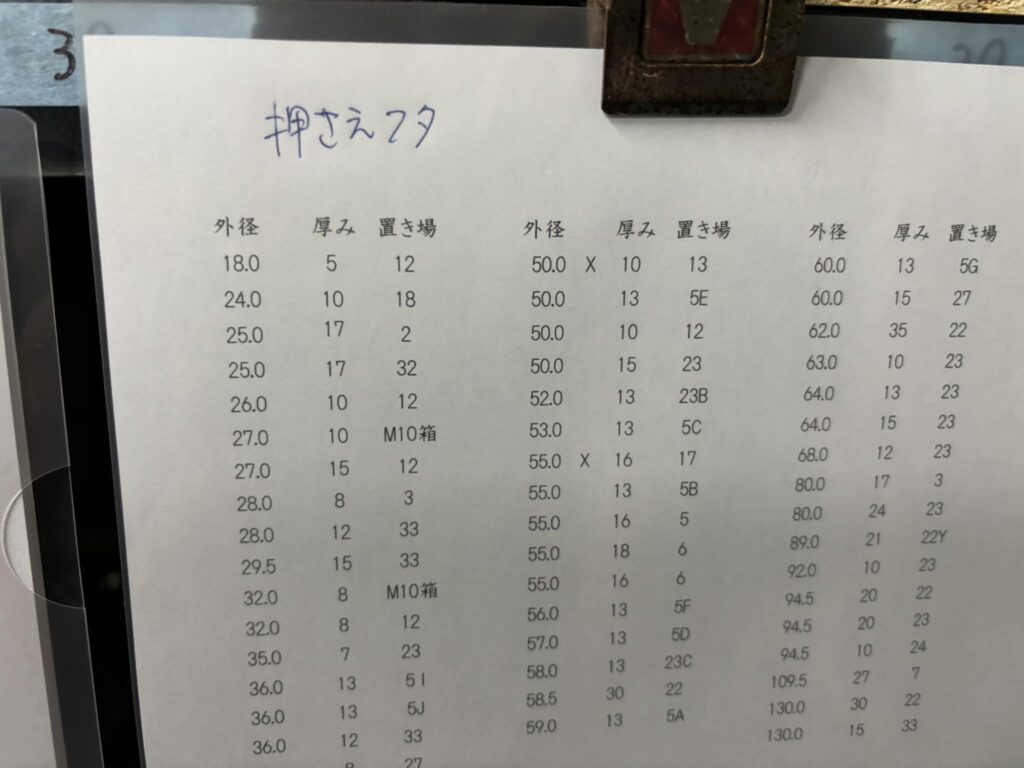 3
押さえフタ
外径 厚み 置き場
18.0 5 12
24.0 10 18
25.0 17 2
25.0 17 32
26.0 10 12
27.0 10 M10箱
27.0 15 12
28.0 8 3
28.0 12 33
29.5 15 33
32.0 8 M10箱
32.0 8 12
35.0 7 23
36.0 13 5I
36.0 13 5J
36.0 12 33
8 27
外径 厚み 置き場
50.0 X 10 13
50.0 13 5E
50.0 10 12
50.0 15 23
52.0 13 23B
53.0 13 5C
55.0 X 16 17
55.0 13 5B
55.0 16 5
55.0 18 6
55.0 16 6
56.0 13 5F
57.0 13 5D
58.0 13 23C
58.5 30 22
59.0 13 5A
外径 厚み 置き場
60.0 13 5G
60.0 15 27
62.0 35 22
63.0 10 23
64.0 13 23
64.0 15 23
68.0 12 23
80.0 17 3
80.0 24 23
89.0 21 22Y
92.0 10 23
94.5 20 22
94.5 20 23
94.5 10 24
109.5 27 7
130.0 30 22
130.0 15 33